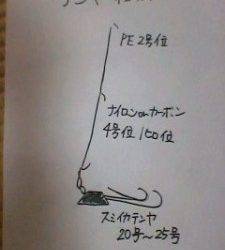 PE2号位
ナイロンorカーボン
4号位 1ヒロ位
スミイカテンヤ
20号〜25号